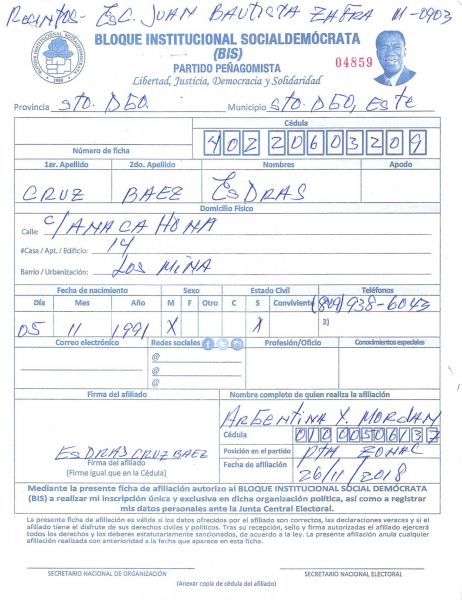 Recintos - Esc. JUAN BAUTISTA ZAFRA M-0903
BLOQUE INSTITUCIONAL SOCIALDEMÓCRATA
(BIS)
PARTIDO PEÑAGOMISTA
Libertad, Justicia, Democracia y Solidaridad
04859
Provincia Sto. Dgo. Municipio Sto. Dgo, Este
Cédula
Número de ficha 40220603209
1er. Apellido 2do. Apellido Nombres Apodo
CRUZ BAEZ EsDRAS
Domicilio Físico
Calle: C/ ANACAHONA
#Casa / Apt. / Edificio: 14
Barrio / Urbanización: LOS MINA
Fecha de nacimiento Sexo Estado Civil Teléfonos
Día Mes Año M F Otro C S Conviviente (809) 938-6043
05 11 1991 X X 2)
Correo electrónico Redes sociales Profesión/Oficio Conocimientos especiales
@
@
@
Firma del afiliado Nombre completo de quien realiza la afiliación
ArGENTINA Y. MORDAN
Cédula 010050613
EsDRAS CRUZ BAEZ Posición en el partido PTA ZONAL
Firma del afiliado
(Firme igual que en la Cédula) Fecha de afiliación 26/11/2018
Mediante la presente ficha de afiliación autorizo al BLOQUE INSTITUCIONAL SOCIAL DEMÓCRATA
(BIS) a realizar mi inscripción única y exclusiva en dicha organización política, así como a registrar
mis datos personales ante la Junta Central Electoral.
La presente ficha de afiliación es válida si los datos ofrecidos por el afiliado son correctos, las declaraciones veraces y si el
afiliado tiene el disfrute de sus derechos civiles y políticos. Tras su recepción, sello y firma autorizadas el afiliado ejercerá
todos los derechos y los deberes estatutariamente sancionados, de acuerdo a la ley. La presente afiliación anula cualquier
afiliación realizada con anterioridad a la fecha que aparece en esta ficha.
SECRETARIO NACIONAL DE ORGANIZACIÓN SECRETARIO NACIONAL ELECTORAL
(Anexar copia de cédula del afiliado)